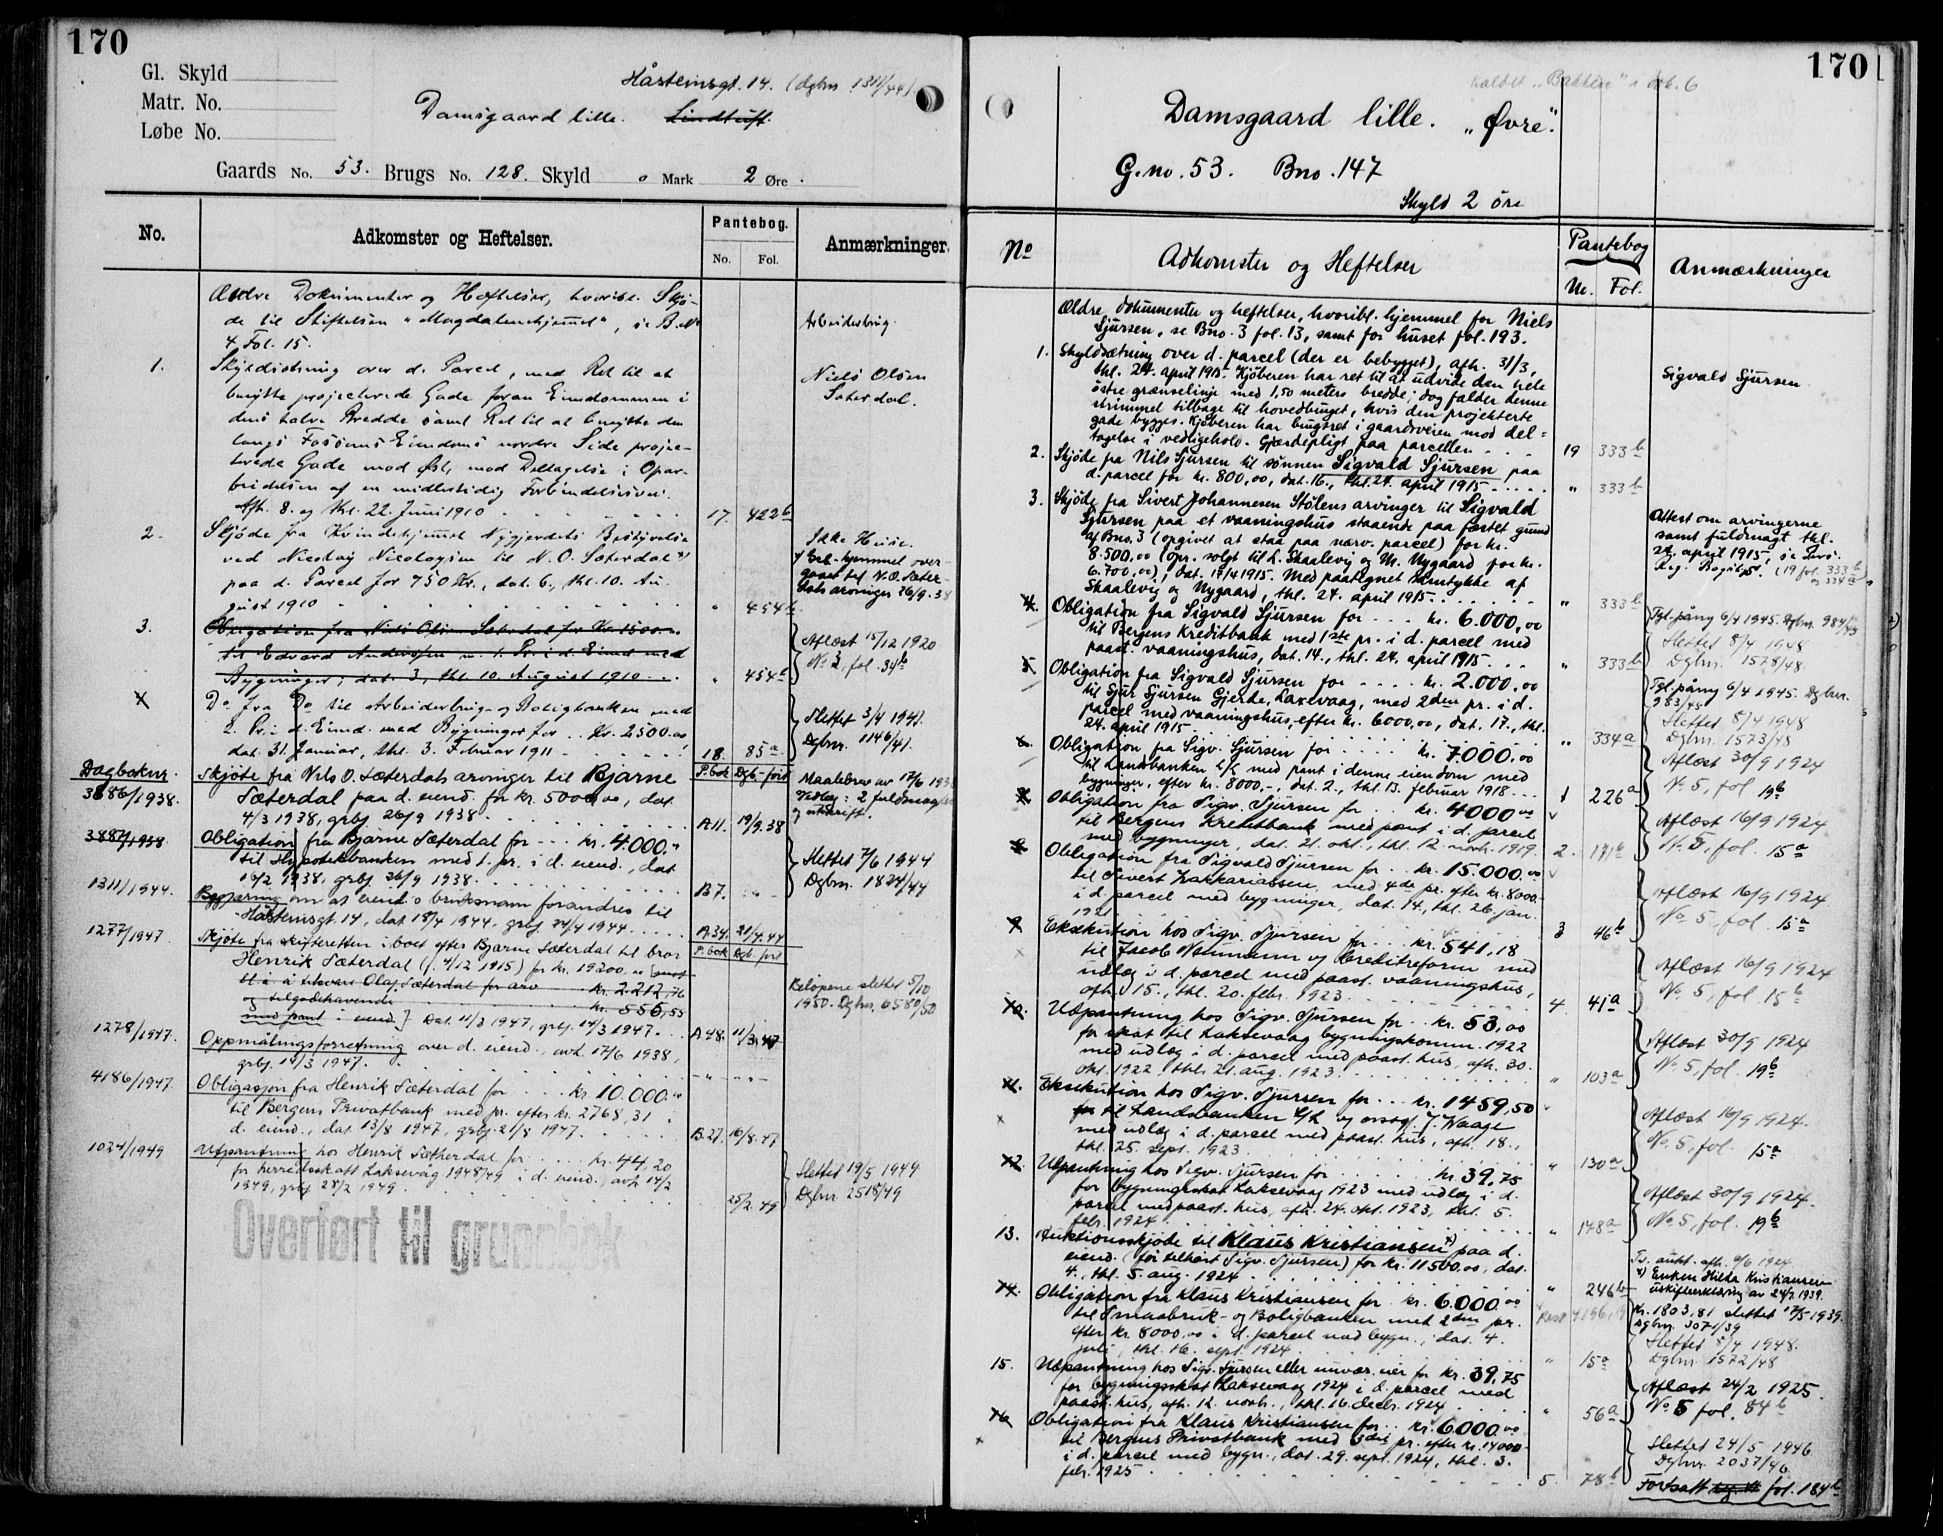 170
Gl. Skyld
Matr. No.
Løbe No.
Håsteinsgt. 14. (dgbnr 1311/44).
Damsgaard lille. Lindtuft.
Gaards No. 53. Brugs No. 128. Skyld 0 Mark 2 Øre.
No.
Adkomster og Heftelser.
Pantebog.
No. Fol.
Anmærkninger.
Ældre Dokumenter og Heftelser, hvoribl. Skjø-
de til Stiftelsen "Magdalenehjemmet", se B.No
4, Fol. 15.
Arbeiderbrug.
1. Skyldditsning over d. Parcel, med Ret til at
benytte projecterede Gade foran Eiendommen i
dens halve Bredde samt Ret til at benytte den
langs Fossens Eiendoms nordre Side projec-
terede Gade mod Øst, mod Deltagelse i Opar-
beidelsen af en midlertidig Forbindelsesvei.
Afh. 8. og thl. 22. Juni 1910 17. 422b
Niels Olsen
Saterdal.
2. Skjøde fra Kvindehjemmet Nygjerdets Bestyrelse
ved Nicolay Nicolaysen til N. O. Saterdal x)
paa d. Parcel for 750 Kr., dat. 6., thl. 10. Au-
gust 1910 " 454b
Ikke Heise.
x) Grb. hjemmel over-
gaaet til N. O. Sæter-
dals arvinger 26/9-38
3. Obligation fra Niels Olsen Saterdal for Kr 1500.-
til Edvard Anderssen m. 1. Pr. i d. Eiend. med
Bygninger, dat. 3., thl. 10. August 1910 " 454b
Aflæst 15/12 1920
No 3, fol. 34b
4. Do fra Do til Arbeiderbrug- og Boligbanken med
2. Pr. i d. Eiend. med Bygninger for .. Kr. 2500.00
dat. 31. Januar, thl. 3. Februar 1911 18. 85a
Slettet 3/4 1941.
Dgbnr. 1146/41.
Dagboknr.
3886/1938. Skjøte fra Nils O. Sæterdals arvinger til Bjarne
Sæterdal paa d. eiend. for kr. 5000,00, dat.
4/3 1938, grbf 26/9 1938
P. bok Dgb. ført
A 11. 19/9.38
Maalebrev av 17/6 1938
Vedlag: 2 fuldmagter
og utskrift.
3887/1938. Obligation fra Bjarne Sæterdal for ... kr. 4.000,"
til Hypotekbanken med 1. pr. i d. eiend., dat
19/2 1938, grbf 26/9 1938. B7. " "
Slettet 7/6 1944
Dgbnr. 1824/44
1311/1944. Begjæring om at eiend.s bruksnavn forandres til
"Håsteinsgt. 14, dat 18/4 1944, grbf 24/4 1944 A.34. 21/4.44
1277/1947. Skjøte fra skifteretten i boet efter Bjarne Sæterdal til bror
Henrik Sæterdal (f. 4/12 1915) for kr. 19200,00 [mot
bl. a. å tilsvare Olaf Sæterdal for arv kr. 2.212,76
og tilgodehavende kr. 556,55
med pant i eiend.] Dat. 11/3 1947, grbf. 14/3 1947.
P. bok Dgb. ført
A 48. 11/3.47
Beløpene slettet 5/10
1950. Dgbnr. 6580/50
1278/1947. Oppmålingsforretning over d. eiend., avh. 17/6 1938,
grbf. 14/3 1947. - " - - " -
4186/1947. Obligasjon fra Henrik Sæterdal for ... kr 10.000,00
til Bergens Privatbank med pr. efter kr. 2768,31 i
d. eiend., dat 13/8 1947, grbf. 21/8 1947. B.27. 16/8.47
1024/1949 Utpantning hos Henrik Sætherdal for ... kr. 44,20
for herredsskatt Laksevåg 1948/49 i d. eiend., avh 14/2
1949, grbf 28/2 1949. 25/2.49
Slettet 19/5 1949
Dgbnr 2518/49
Overført til grunnbok
170
Kaldet "Bakken" i dok. 6
Damsgaard lille. "Øvre".
G. no. 53. Bno. 147
Skyld 2 öre
No
Adkomster og Heftelser
Pantebog
Nr. Fol.
Anmærkninger
Ældre dokumenter og heftelser, hvoribl. hjemmel for Niels
Sjursen, se Bno. 3 fol. 13, samt for huset fol. 193.
1. Skyldsætning over d. parcel (der er bebygget), afh. 31/3,
thl. 24. april 1915. Kjøberen har ret til at udvide den hele
östre grænselinje med 1,50 meters bredde; dog falder denne
strimmel tilbage til hovedbruget, hvis den projekterte
gade bygges. Kjøberen har brugsret i gaardsveien mod del-
tagelse i vedligehold. Gjærdepligt paa parcellen 19 333b
Sigvald Sjursen.
2. Skjøde fra Nils Sjursen til sønnen Sigvald Sjursen paa
d. parcel for kr. 800,00, dat. 16., thl. 24. april 1915 " 333b
3. Skjøde fra Sivert Johannesen Stølens arvinger til Sigvald
Sjursen paa et vaaningshus staaende paa fæstet grund
af Bno. 3 (opgivet at staa paa nærv. parcel) for kr.
8.500,00 (opr. solgt til L. Skaalevig og M. Nygaard for kr.
6.700,00), dat. 17/4 1915. Med paategnet samtykke af
Skaalevig og Nygaard, thl. 24. april 1915 " 333b
Attest om arvingerne
samt fuldmagt thl.
24. april 1915, se
Reg. (19 fol. 333b
og 334a)
4. Obligation fra Sigvald Sjursen for ... kr. 6.000,00
til Bergens Kreditbank med 1ste pr. i d. parcel med
paast. vaaningshus, dat. 14., thl. 24. april 1915 " 333b
Tgl. påny 6/4 1945. Dgbnr. 984/45
Slettet 8/4 1948
Dgbnr. 1578/48.
5. Obligation fra Sigvald Sjursen for ... kr. 2.000,00
til Sjur Sjursen Gjerde, Laxevaag, med 2den pr. i d.
parcel med vaaningshus, efter kr. 6000,00, dat. 17., thl.
24. april 1915 " 334a
Tgl. påny 6/4 1945. Dgbnr.
983/45
Slettet 8/4 1948
Dgbnr. 1573/48
6. Obligation fra Sigv. Sjursen for ... kr. 7.000,00
til Landsbanken A/S med pant i denne eiendom med
bygninger, efter kr. 8000,-, dat. 2., thl. 13. februar 1918 1 226a
Aflæst 30/9 1924
No 5, fol 19b
7. Obligation fra Sigv. Sjursen for .. kr. 4000,00
til Bergens Kreditbank med pant i d. parcel
med bygninger, dat. 21. okt., thl. 12. novb. 1919. 2. 191b
Aflæst 16/9 1924
No 5, fol. 15a
8. Obligation fra Sigvald Sjursen for .. kr. 15.000,00
til Sivert Zakkariassen, med 4de pr. efter kr. 8000.-
i d. parcel med bygninger, dat. 14., thl. 26. jan.
1921 3 46b
Aflæst 16/9 1924
No. 5, fol. 15a
9. Eksekution hos Sigv. Sjursen for ... kr. 541,18
til Jacob Neumann og Creditreform med
udlæg i d. parcel med paast. vaaningshus,
afh. 15., thl. 20. febr. 1923. 4. 41a
Aflæst 16/9 1924
No. 5, fol 15b
10. Udpantning hos Sigv. Sjursen for .. kr. 53,00
for skat til Laksevaag bygningskomm. 1922
med udlæg i d. parcel med paast. hus, afh. 30.
okt. 1922, thl. 21. aug. 1923 " 103a
Aflæst 30/9 1924
No 5, fol. 19b
11. Eksekution hos Sigv. Sjursen for ... kr. 1459,50
for til Landsbanken A/S og orssgf. J. Waage
med udlæg i d. parcel med paast. hus, afh. 18.,
thl. 25. sept. 1923 " 130a
Aflæst 16/9 1924.
No. 5, fol. 15a
12. Udpantning hos Sigv. Sjursen for ... kr 39,75
for bygningsskat Laksevaag 1923 med udlæg i d.
parcel med paast. hus, afh. 24. okt. 1923, thl. 5.
febr. 1924. " 178a
Aflæst 30/9 1924.
No. 5, fol. 19b
13. Auktionsskjøde til Klaus Kristiansen x) paa d.
eiend. (før tilhørt Sigv. Sjursen) for kr. 11500,00, dat.
4., thl. 5. aug. 1924 " 246b
Tv. aukt. afh. 6/6 1924.
x) Enken Hilda Kristiansen
uskifteerklæring av 24/2 1939.
14. Obligation fra Klaus Kristiansen for .. kr. 6.000,00
til Smaabruk- og Boligbanken med 2den pr.
efter kr. 8000,00 i d. parcel med bygn., dat. 4.
juli, thl. 16. sept. 1924 " 15a
Rest 4196,19
Kr. 1803,81 slettet 17/5-1939.
Dgbnr. 3071/39
Slettet 8/4 1948.
Dgbnr. 1572/48
15. Udpantning hos Sigv. Sjursen eller nuvær. eier for kr. 39,75
for bygningsskat Laksevaag 1924 i d. parcel med
paast. hus, afh. 12. novb., thl. 16. decbr. 1924 " 56a
Aflæst 24/2 1925.
No 5 fol. 84b
16. Obligation fra Klaus Kristiansen for .. kr. 6.000,00
til Bergens Privatbank med 3die pr. efter kr. 14000.-
i d. parcel med bygn., dat. 29. sept. 1924, thl. 3.
febr. 1925 5. 78b
Slettet 24/5 1946
Dgbnr. 2037/46
Fortsatt fol. 184b